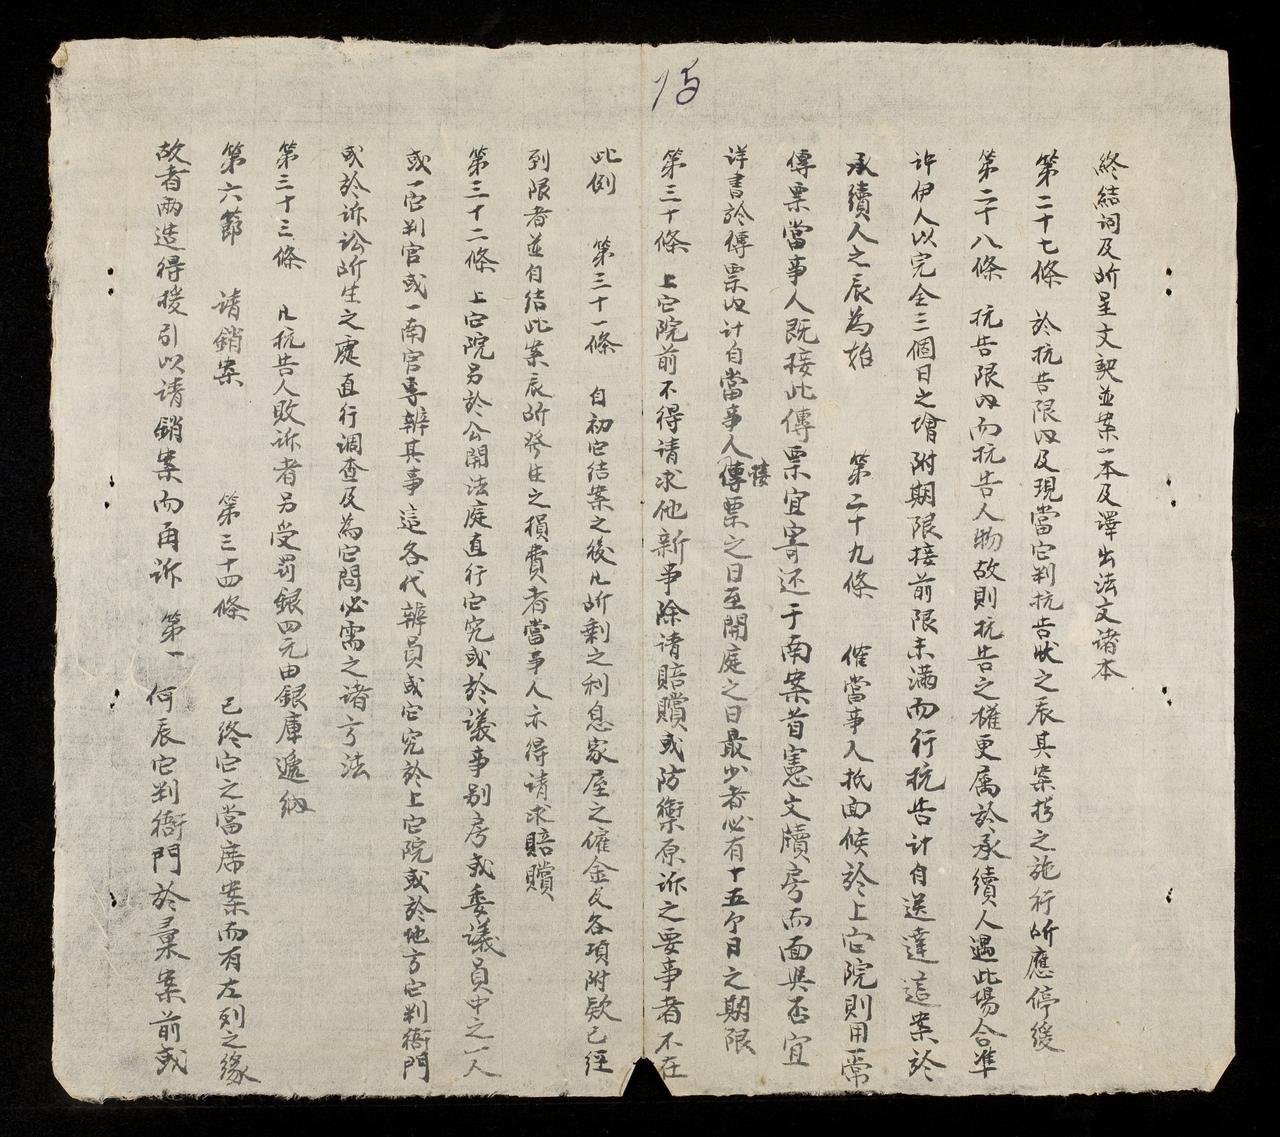 15
終結詞及所呈文契並案一本及譯出法文諸本
第二十七條 於抗告限内及現當它判抗告狀之辰其案扵之施行所應停缓
第二十八條 抗告限内而抗告人物故則抗告之權更属於承續人遇此場合準
許伊人以完全三個日之增附期限接前限未满而行抗告計自送達這案於
承續人之辰為始 第二十九條 催當事人抵面候於上它院則用常
傳票當事人既接此傳票宜寄还于南案首憲文牘房而面與否宜
详書於傳票内计自當事人接傳票之日至開庭之日最少者必有十五个日之期限
第三十條 上它院前不得请求他新事除请賠償或防禦原诉之要事者不在
此例 第三十一條 自初它结案之後凡所剩之利息家屋之僱金及各项附欵已经
到限者並自结此案辰所發生之損費者當事人亦得请求賠償
第三十二條 上它院另於公開法庭直行它究或於議事别房或委議員中之一人
或一它判官或一南官專辨其事這各代辨員或它究於上它院或於地方它判衙門
或於诉讼所生之處直行调查及為它問必需之諸方法
第三十三條 凡抗告人敗诉者另受罰銀四元由銀庫遞納
第六節 请銷案 第三十四條 已终它之當席案而有左列之缘
故者兩造得援引以请銷案而再诉 第一 何辰它判衙門於棄案前或